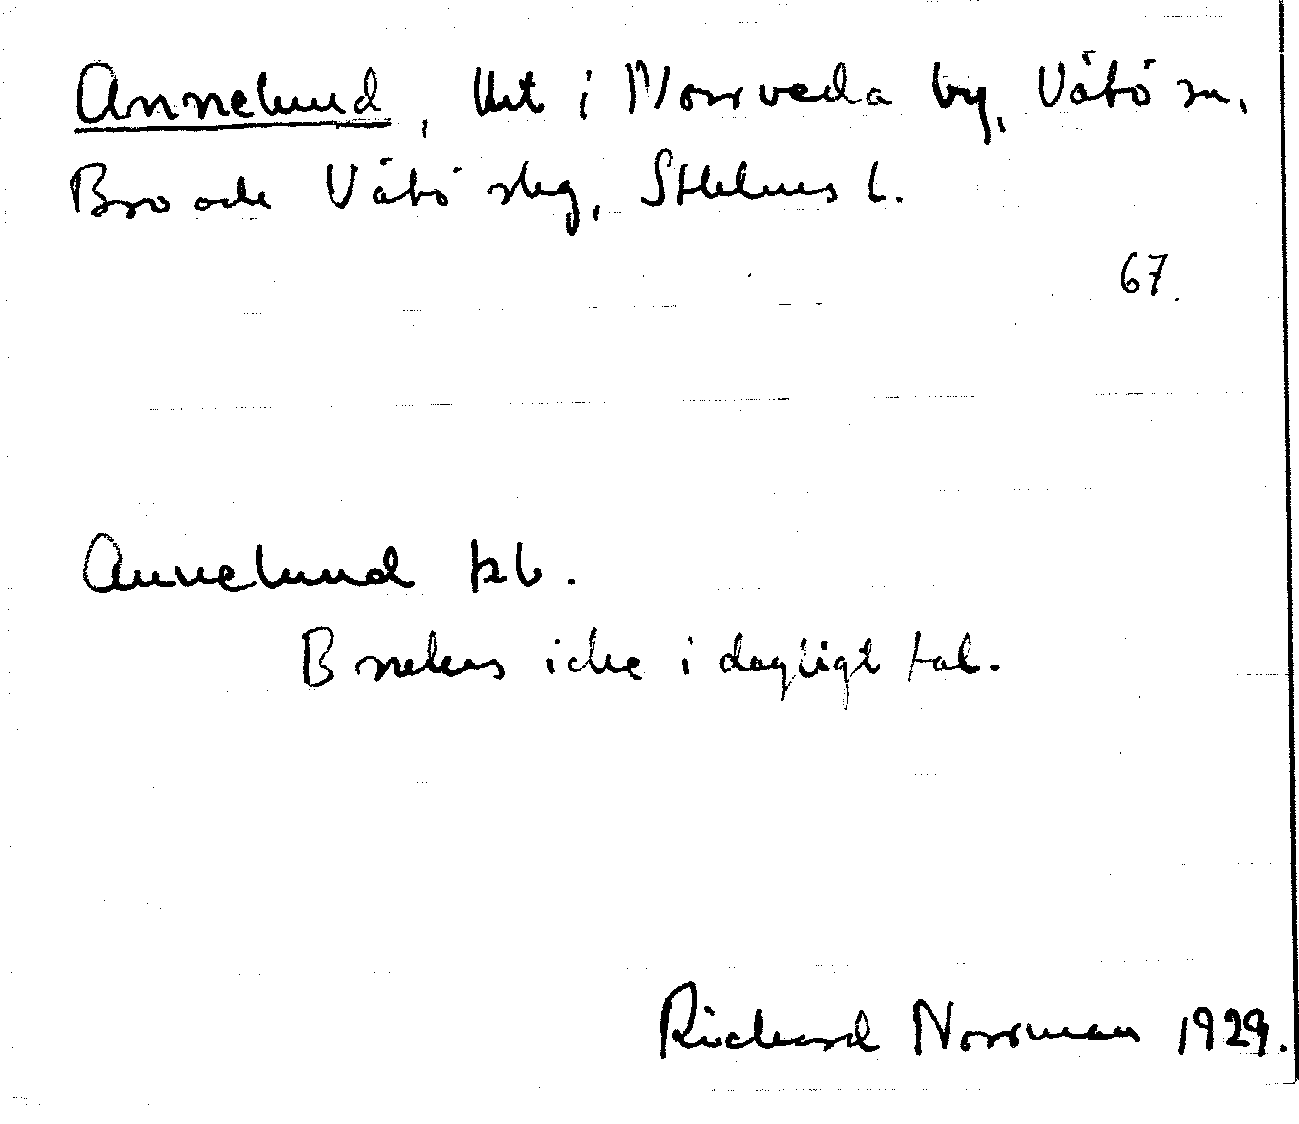 Annelund, lht i Norrveda by, Vätö sn,
Bro och Vätö skg, Sthlms l.
67.
Annelund kb.
Brukas icke i dagligt tal.
Richard Norrman 1929.